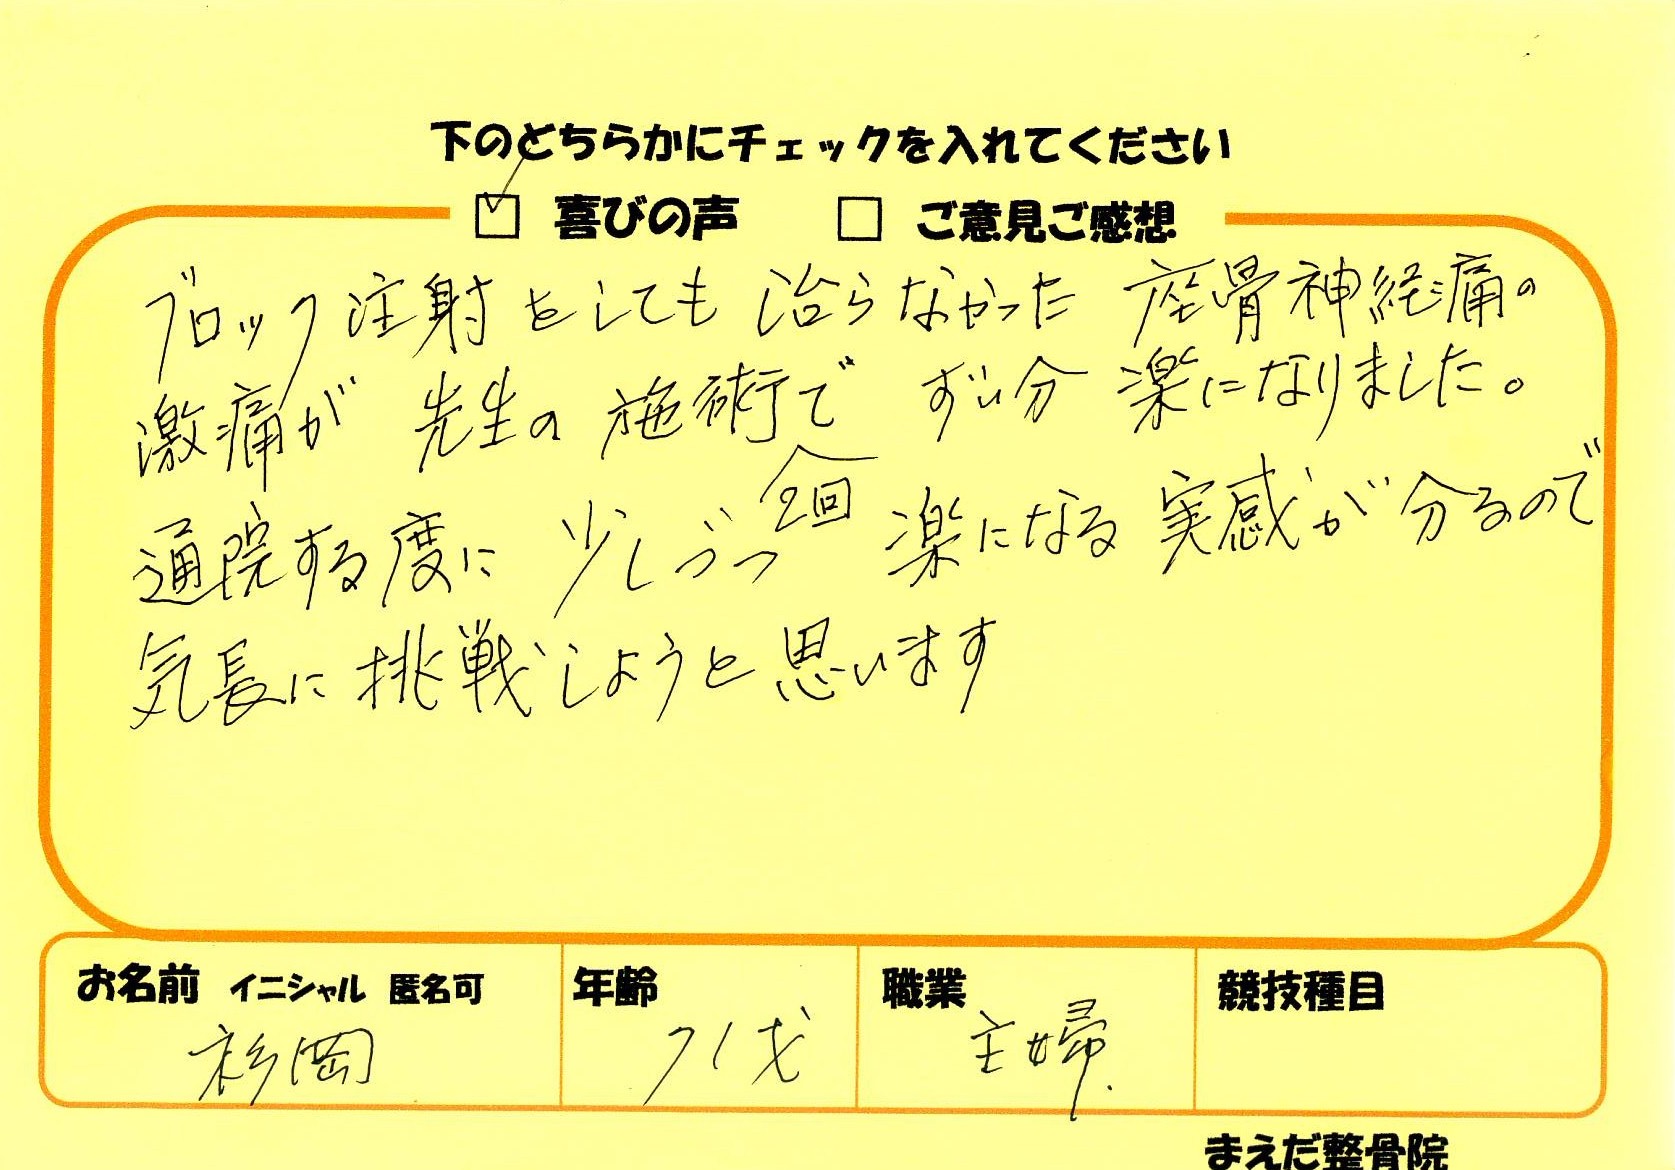 下のどちらかにチェックを入れてください
喜びの声 ご意見ご感想
ブロック注射をしても治らなかった座骨神経痛の
激痛が先生の施術でずい分楽になりました。
通院する度に少しづつ 2回 楽になる実感が分るので
気長に挑戦しようと思います
お名前 イニシャル 匿名可 年齢 職業 競技種目
杉岡 71才 主婦
まえだ整骨院